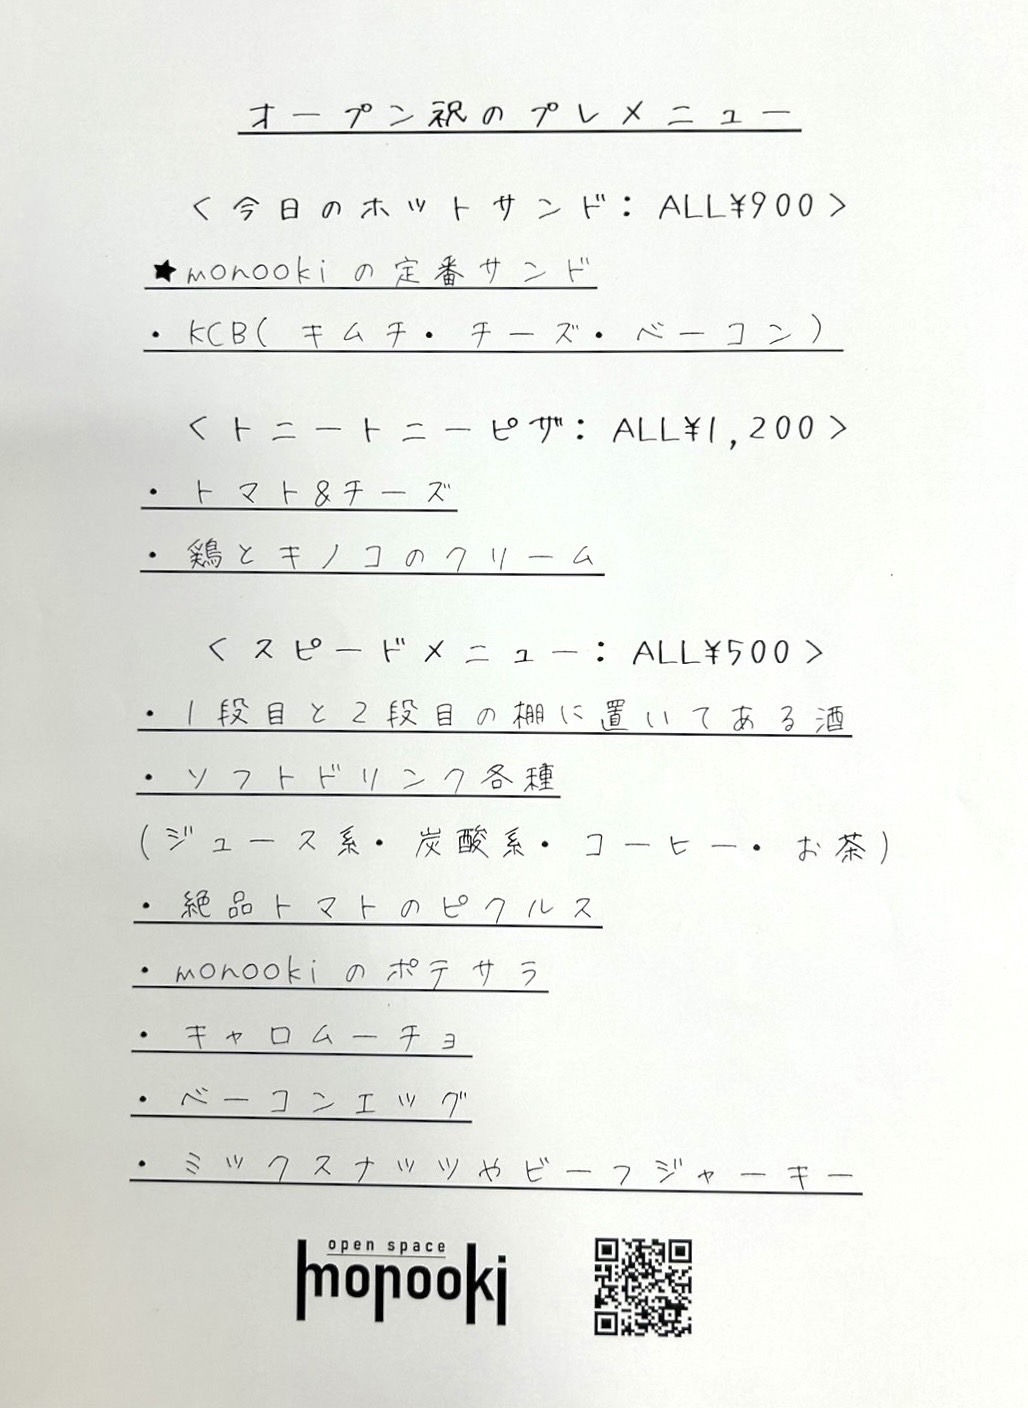 オープン祝のプレメニュー
<今日のホットサンド：ALL¥900>
★monookiの定番サンド
・KCB(キムチ・チーズ・ベーコン)
<トニートニーピザ：ALL¥1,200>
・トマト&チーズ
・鶏とキノコのクリーム
<スピードメニュー：ALL¥500>
・1段目と2段目の棚に置いてある酒
・ソフトドリンク各種
(ジュース系・炭酸系・コーヒー・お茶)
・絶品トマトのピクルス
・monookiのポテサラ
・キャロムーチョ
・ベーコンエッグ
・ミックスナッツやビーフジャーキー
open space
monooki